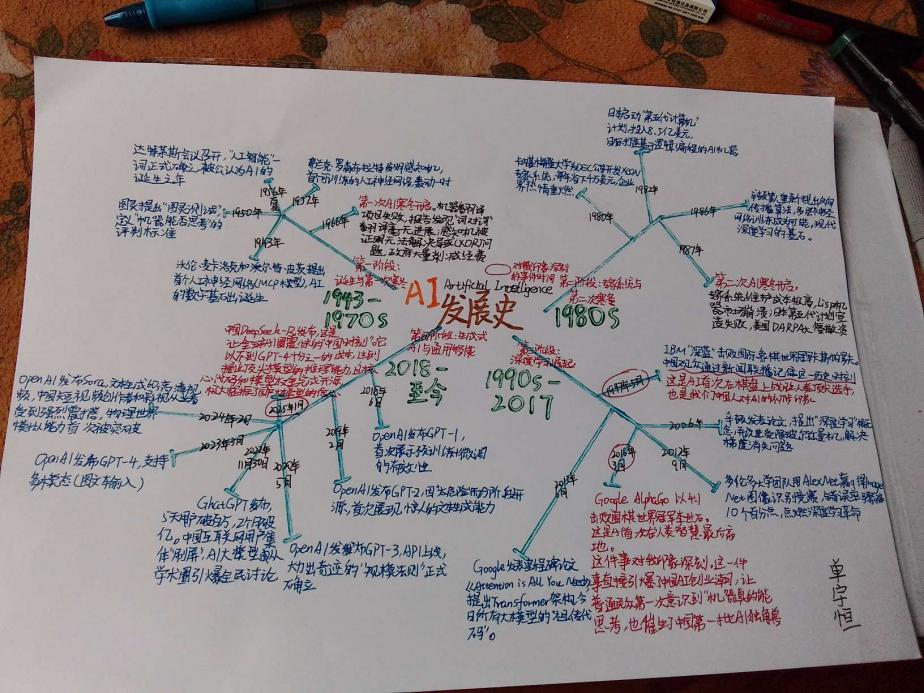 达特茅斯会议召开，"人工智能"一
词正式确立，被公认为AI的
诞生之年
1956年
夏
弗兰克·罗森布拉特发明感知机，
首个可训练的人工神经网络轰动一时
1957年
图灵提出"图灵测试"，
定义"机器能否思考"的
评判标准
1950年
第一次AI寒冬开启。机器翻译
项目失败，报告指
翻译毫无进展；感知机被
证明无法解决异或(XOR)问
题，政府大量削减经费
1966年
沃伦·麦卡洛克和沃尔特·皮茨提出
首个人工神经网络(MCP模型)，AI
的数字基石出诞生
1943年
第一阶段：
诞生与第一次寒冬
1943-
1970s
AI
Artificial Intelligence
发展史
对我印象深刻
的事件时间
日本启动"第五代计算机"
计划，投入8.5亿美元，
目标打造基于逻辑编程的AI机器
1982年
卡内基梅隆大学为DEC公司开发XCON
专家系统，每年省下4千万美元，企业
界热情重燃
1980年
辛顿等重新提出反向
传播算法，多层神经
网络训练成为可能，现代
深度学习的基石。
1986年
1987年
第二次AI寒冬开启，
专家系统维护成本极高，Lisp机
器市场崩溃；日本第五代计划宣
告失败，美国DARPA大撤资
第二阶段：专家系统与
第二次寒冬
1980s
第三阶段：
深度学习崛起
1990s-
2017
IBM"深蓝"击败国际象棋世界冠军
中国观众通过新闻联播记住这一历史时刻
这是AI首次在棋盘上战胜人类顶尖选手，
1997年5月
辛顿发表论文，提出"深度学习"概
念，并改进受限玻尔兹曼机，解决
梯度消失问题
2006年
多伦多大学团队用AlexNet赢得Image
Net图像识别竞赛，
10个百分点，点燃深度学习革命
2012年
9月
Google AlphaGo 以4:1
击败围棋世界冠军李世石。
这是AI首次在人类智慧最后高
地。
这件事对我印象深刻，这一件
事直接引爆了中国AI创业潮，让
普通民众第一次意识到"机器真的能
思考"，也催生了中国第一批AI独角兽
2016年
3月
Google发表里程碑论文
《Attention is All You Need》
提出Transformer架构，今
日所有大模型的"祖传代
码"。
第四阶段：生成式
AI与通用智能
2018-
至今
中国DeepSeek-R发布，这是
让全球AI圈震惊的"中国时刻"。它
以不到GPT-4十分之一的成本，达到
2025年1月
OpenAI发布Sora，文本生成的高清视
频，中国短视频创作者和影视从业者
受到强烈震撼，物理世界
模拟能力首次被突破
2024年2月
OpenAI发布GPT-4，支持
多模态(图文输入)
2023年3月
ChatGPT发布，
5天用户破百万，2个月破
亿。中国互联网用户集
体"刷屏"，AI大模型从
学术圈引爆全民讨论
2022年
11月30日
OpenAI发布GPT-3，API上线，
大力出奇迹的"规模法则"正式
确立
2020年
5月
OpenAI发布GPT-2，因"太危险"而分阶段开
源，首次展现了惊人的文本生成能力
2019年
2月
OpenAI发布GPT-1，
首次展示预训练+微调
的有效性
2018年
6月
单宇恒